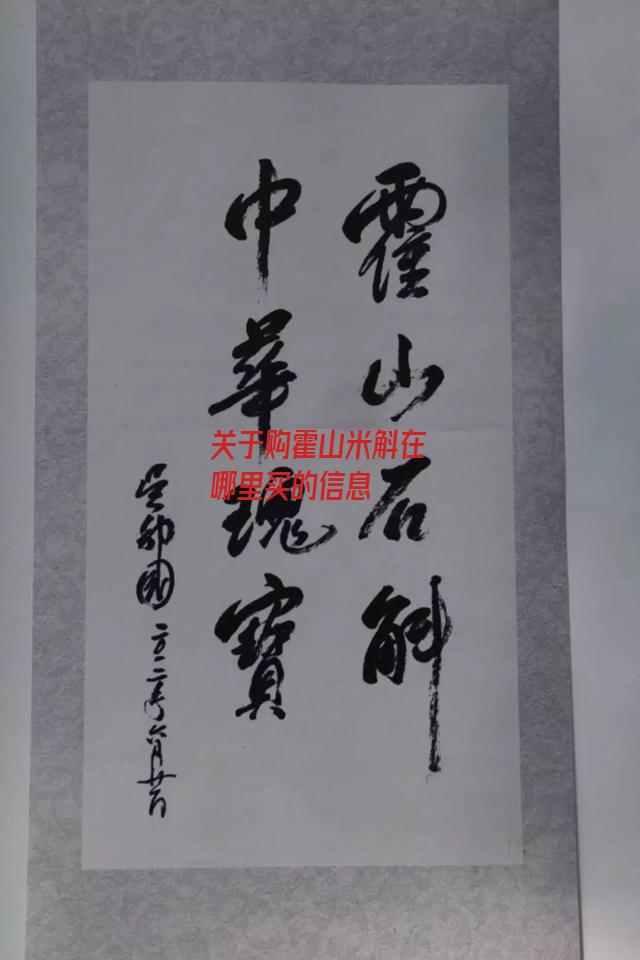 霍山石斛
中華瑰寶
吴邦國
二〇一二年六月廿六日
关于购霍山米斛在
哪里买的信息